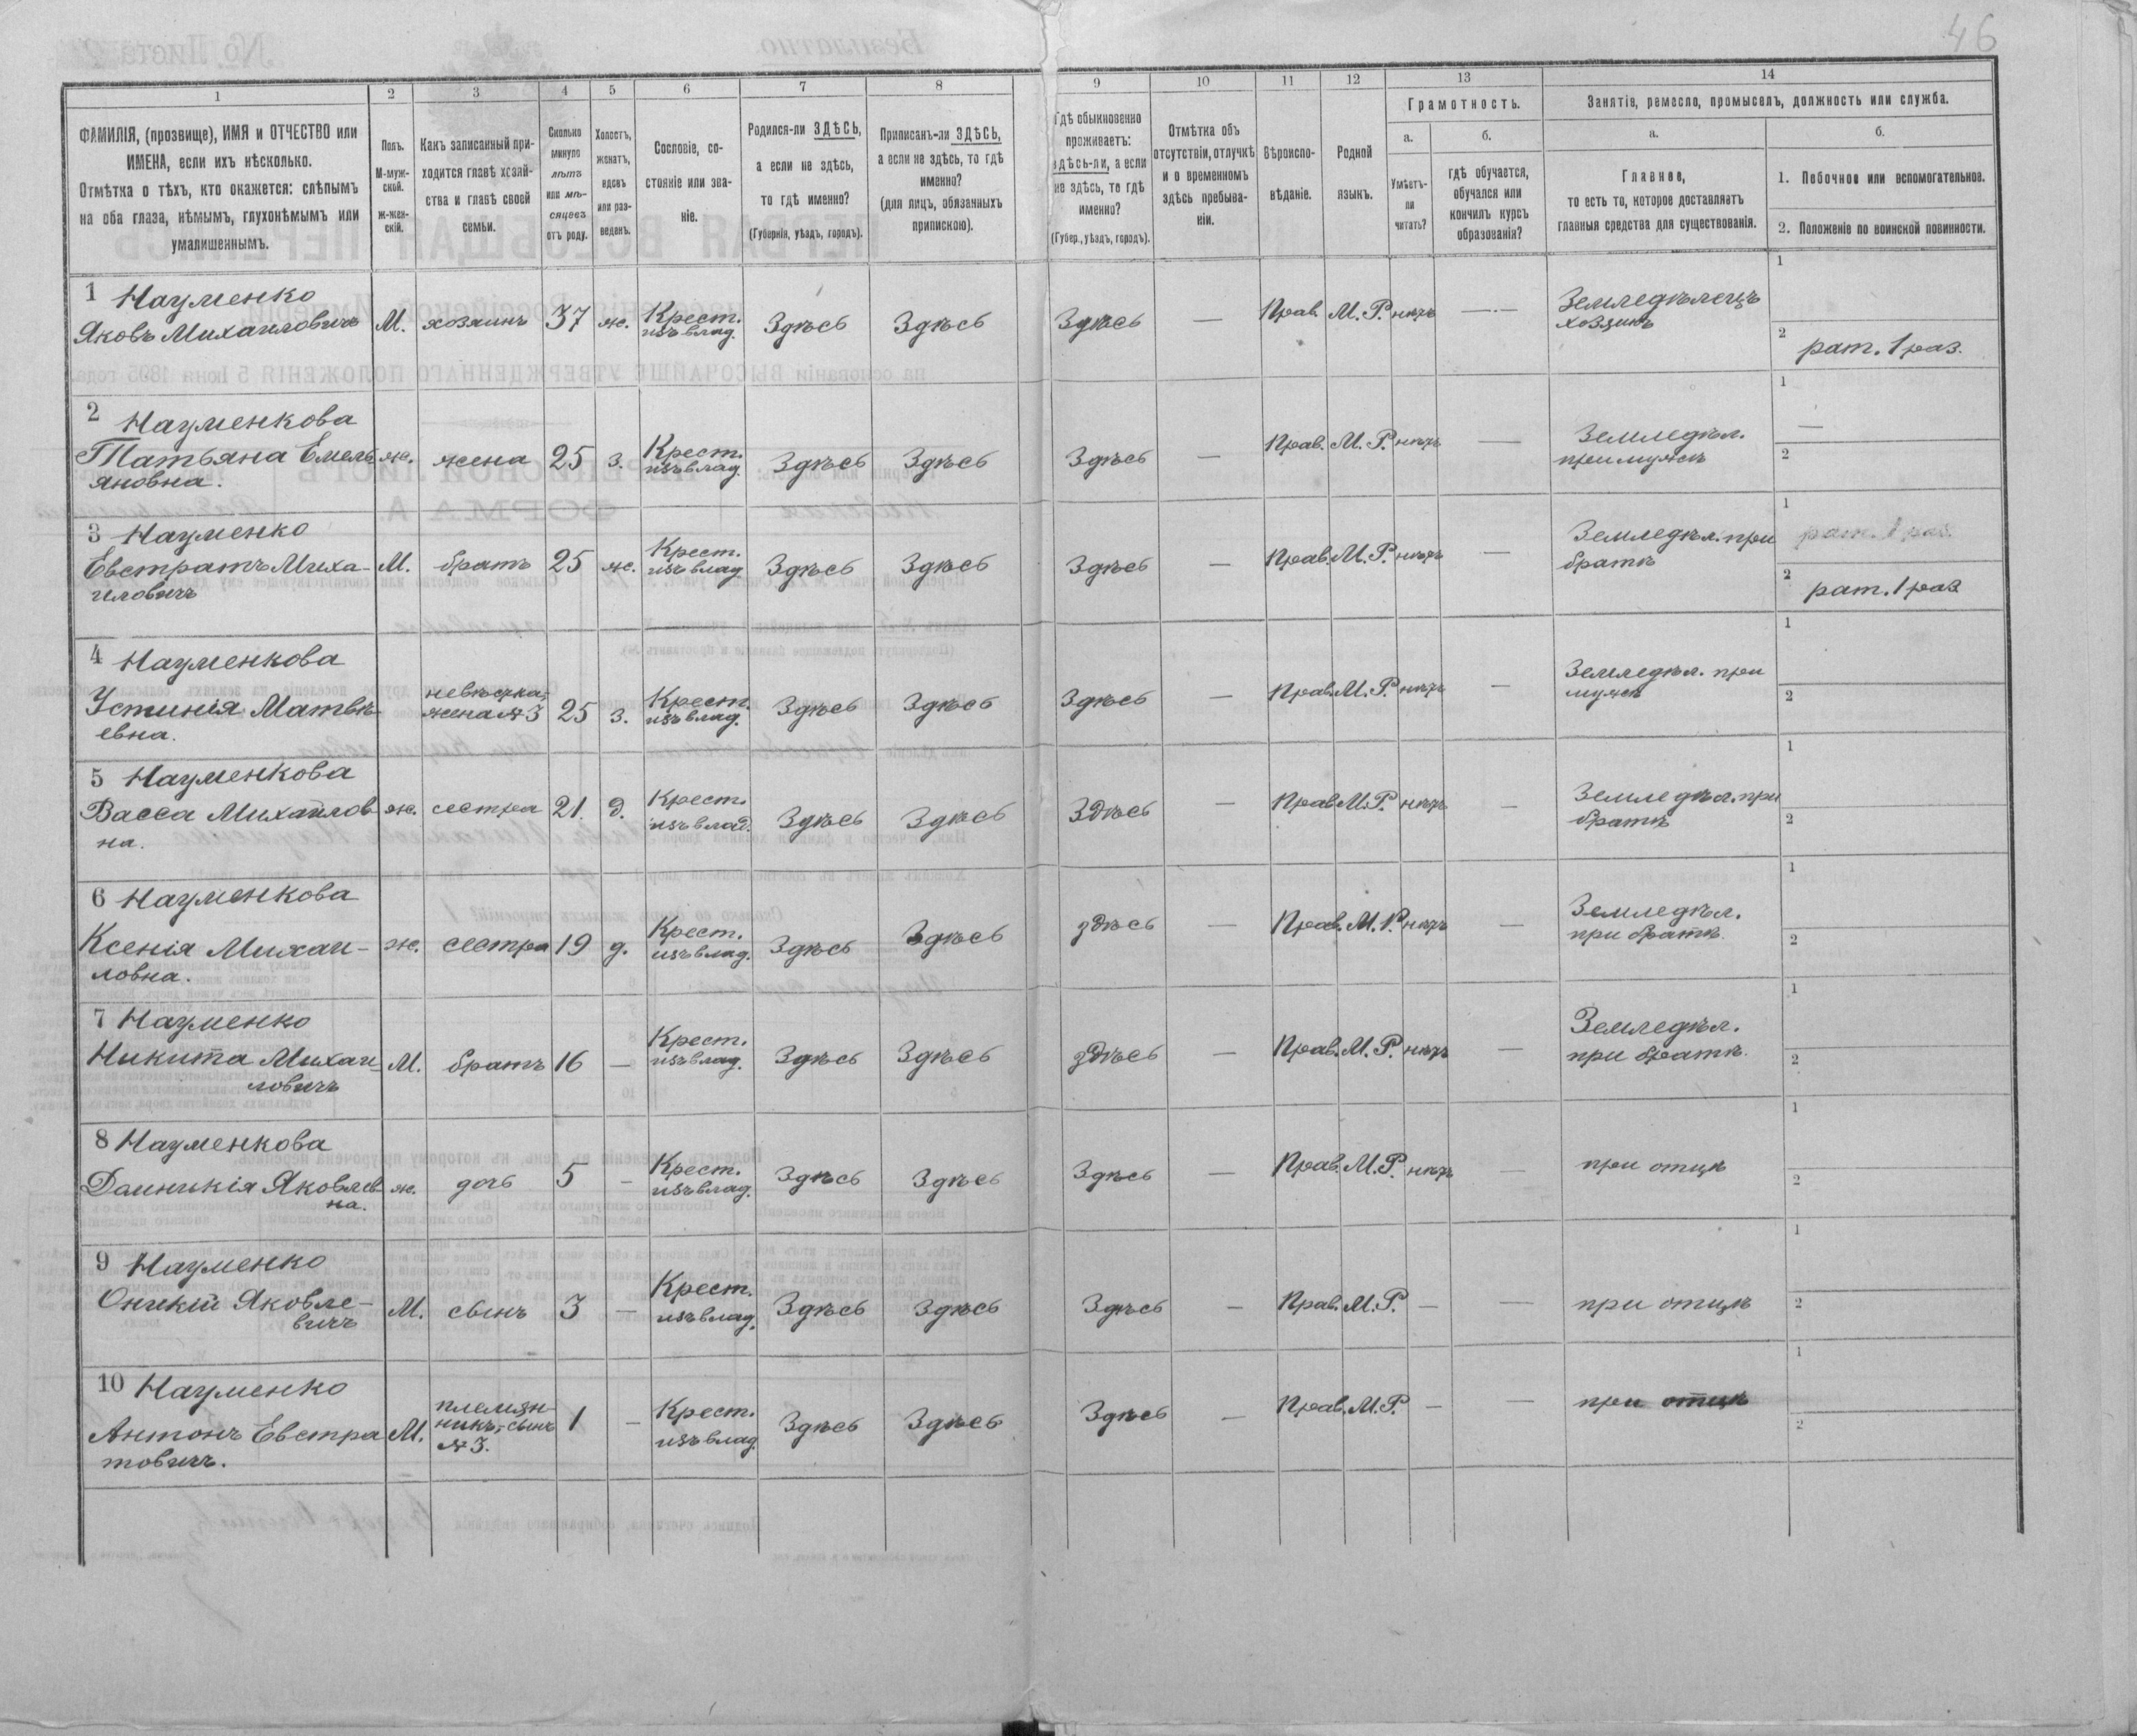 46
1 2 3 4 5 6 7 8 9 10 11 12 13 14
ФАМИЛІЯ, (прозвище), ИМЯ и ОТЧЕСТВО или
ИМЕНА, если ихъ нѣсколько.
Отмѣтка о тѣхъ, кто окажется: слѣпымъ
на оба глаза, нѣмымъ, глухонѣмымъ или
умалишеннымъ.
Полъ.
М-муж-
ской.
ж-жен-
скій.
Какъ записанный при-
ходится главѣ хозяй-
ства и главѣ своей
семьи.
Сколько
минуло
лѣтъ
или мѣ-
сяцевъ
отъ роду.
Холостъ,
женатъ,
вдовъ
или раз-
веденъ.
Сословіе, со-
стояніе или зва-
ніе.
Родился-ли ЗДѢСЬ,
а если не здѣсь,
то гдѣ именно?
(Губернія, уѣздъ, городъ).
Приписанъ-ли ЗДѢСЬ,
а если не здѣсь, то гдѣ
именно?
(для лицъ, обязанныхъ
припискою).
Гдѣ обыкновенно
проживаетъ:
здѣсь-ли, а если
не здѣсь, то гдѣ
именно?
(Губер., уѣздъ, городъ).
Отмѣтка объ
отсутствіи, отлучкѣ
и о временномъ
здѣсь пребыва-
ніи.
Вѣроиспо-
вѣданіе.
Родной
языкъ.
Грамотность.
а.
Умѣетъ-
ли
читать?
б.
гдѣ обучается,
обучался или
кончилъ курсъ
образованія?
Занятіе, ремесло, промыселъ, должность или служба.
а.
Главное,
то есть то, которое доставляетъ
главныя средства для существованія.
б.
1. Побочное или вспомогательное.
2. Положеніе по воинской повинности.
1 Науменко
Яковъ Михаиловичъ М. хозяинъ 37 ж. Крест. изъ влад. Здѣсь Здѣсь Здѣсь — Прав. М. Р. нѣтъ — Земледѣлецъ
хозяинъ
1
2 рат. 1 раз.
2 Науменкова
Татьяна Емель ж. жена 25 з. Крест. изъ влад. Здѣсь Здѣсь Здѣсь — Прав. М. Р. нѣтъ — Земледѣл.
яновна. при мужѣ
1 —
2
3 Науменко
Евстратъ Миха- М. братъ 25 ж. Крест. изъ влад. Здѣсь Здѣсь Здѣсь — Прав. М. Р. нѣтъ — Земледѣл. при
иловичъ братѣ
1 рат. 1 раз.
2 рат. 1 раз.
4 Науменкова
Устинія Матвѣ- невѣстка, жена №3 25 з. Крест. изъ влад. Здѣсь Здѣсь Здѣсь — Прав. М. Р. нѣтъ — Земледѣл. при
евна. мужѣ
1
2
5 Науменкова
Васса Михайлов ж. сестра 21. д. Крест. изъ влад. Здѣсь Здѣсь Здѣсь — Прав. М. Р. нѣтъ — Земледѣл. при
на. братѣ
1
2
6 Науменкова
Ксенія Михаи- ж. сестра 19 д. Крест. изъ влад. Здѣсь Здѣсь здѣсь — Прав. М. Р. нѣтъ — Земледѣл.
ловна. при братѣ.
1
2
7 Науменко
Никита Михаи- М. братъ 16 — Крест. изъ влад. Здѣсь Здѣсь здѣсь — Прав. М. Р. нѣтъ — Земледѣл.
ловичъ при братѣ.
1
2
8 Науменкова
Яковлев ж. дочь 5 — Крест. изъ влад. Здѣсь Здѣсь Здѣсь — Прав. М. Р. нѣтъ — при отцѣ
на.
1
2
9 Науменко
Яковле- М. сынъ 3 — Крест. изъ влад. Здѣсь Здѣсь Здѣсь — Прав. М. Р. — — при отцѣ
вичъ
1
2
10 Науменко
Антонъ Евстра М. племян- никъ, сынъ №3. 1 — Крест. изъ влад. Здѣсь Здѣсь Здѣсь — Прав. М. Р. — — при отцѣ
товичъ.
1
2